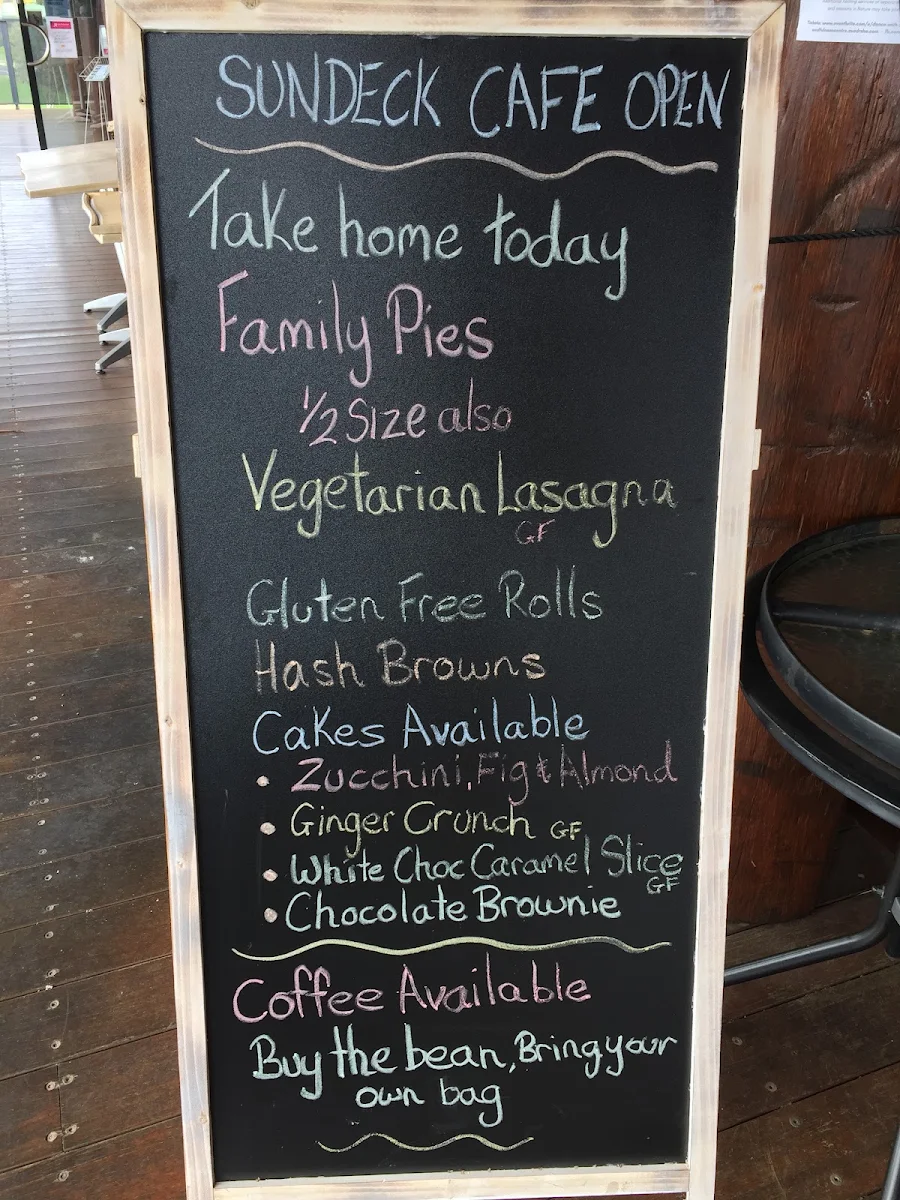 SUNDECK CAFE OPEN
Take home today
Family Pies
1/2 Size also
Vegetarian Lasagna
GF
Gluten Free Rolls
Hash Browns
Cakes Available
• Zucchini, Fig & Almond
• Ginger Crunch GF
• White Choc Caramel Slice
GF
• Chocolate Brownie
Coffee Available
Buy the bean, Bring your
own bag